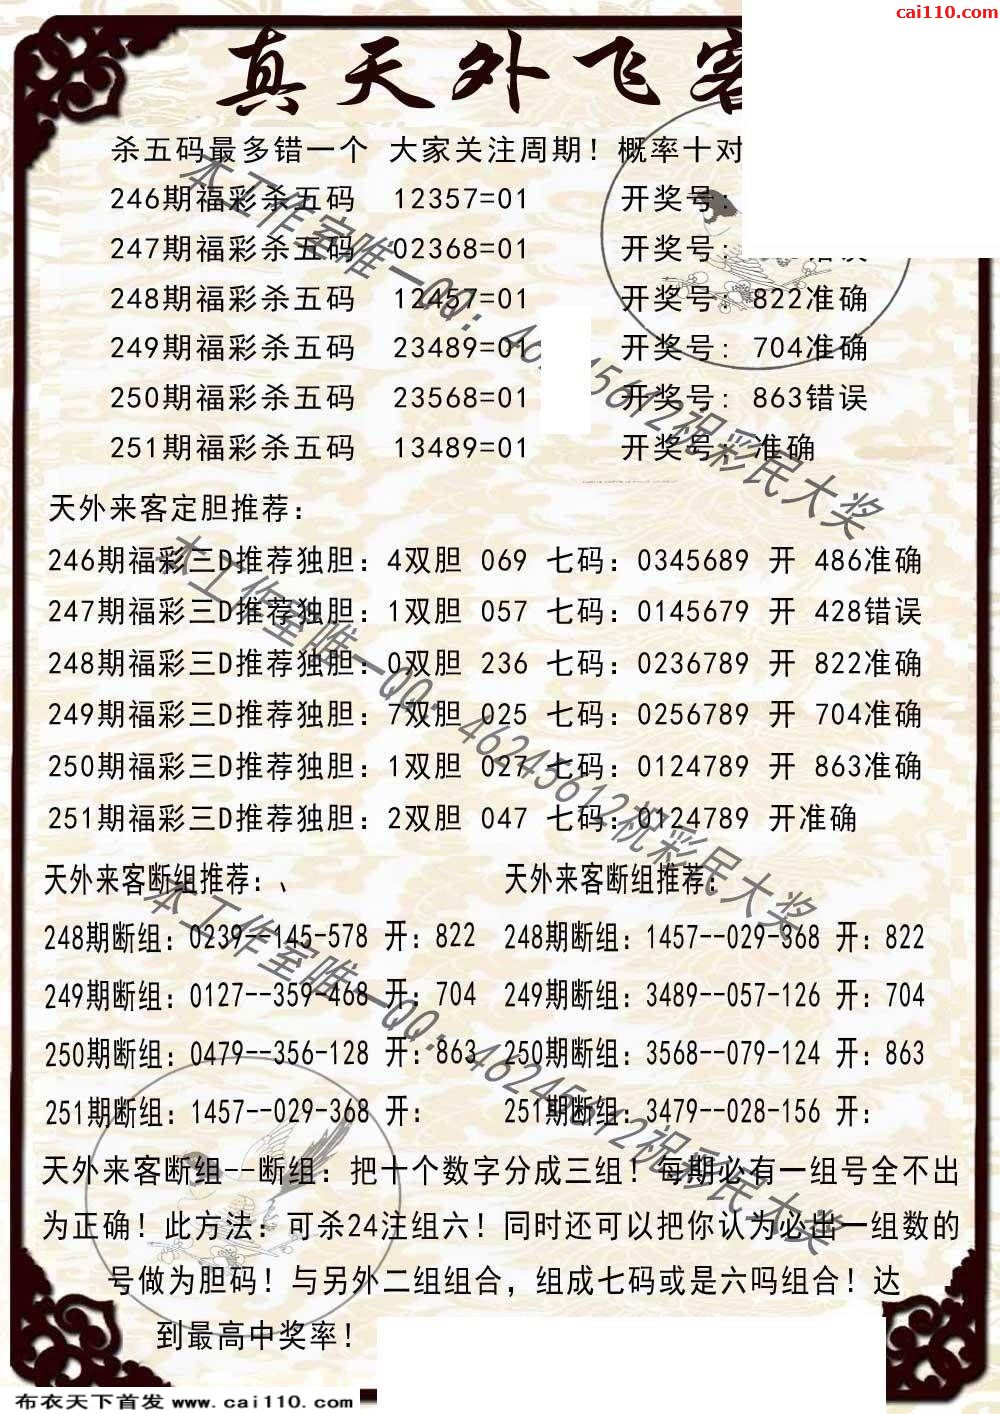 cai110.com
真天外飞客
杀五码最多错一个 大家关注周期！概率十对
246期福彩杀五码 12357=01 开奖号:
247期福彩杀五码 02368=01 开奖号: 错误
248期福彩杀五码 12457=01 开奖号: 822准确
249期福彩杀五码 23489=01 开奖号: 704准确
250期福彩杀五码 23568=01 开奖号: 863错误
251期福彩杀五码 13489=01 开奖号: 准确
天外来客定胆推荐:
246期福彩三D推荐独胆: 4双胆 069 七码: 0345689 开 486准确
247期福彩三D推荐独胆: 1双胆 057 七码: 0145679 开 428错误
248期福彩三D推荐独胆: 0双胆 236 七码: 0236789 开 822准确
249期福彩三D推荐独胆: 7双胆 025 七码: 0256789 开 704准确
250期福彩三D推荐独胆: 1双胆 027 七码: 0124789 开 863准确
251期福彩三D推荐独胆: 2双胆 047 七码: 0124789 开准确
天外来客断组推荐:、 天外来客断组推荐:
248期断组: 0239--145-578 开: 822 248期断组: 1457--029-368 开: 822
249期断组: 0127--359-468 开: 704 249期断组: 3489--057-126 开: 704
250期断组: 0479--356-128 开: 863 250期断组: 3568--079-124 开: 863
251期断组: 1457--029-368 开: 251期断组: 3479--028-156 开:
天外来客断组--断组: 把十个数字分成三组！每期必有一组号全不出
为正确！此方法: 可杀24注组六！同时还可以把你认为必出一组数的
号做为胆码！与另外二组组合，组成七码或是六吗组合！达
到最高中奖率！
本工作室唯一QQ: 46245612祝彩民大奖
本工作室唯一QQ: 46245612祝彩民大奖
本工作室唯一QQ: 46245612祝彩民大奖
布衣天下首发 www.cai110.com